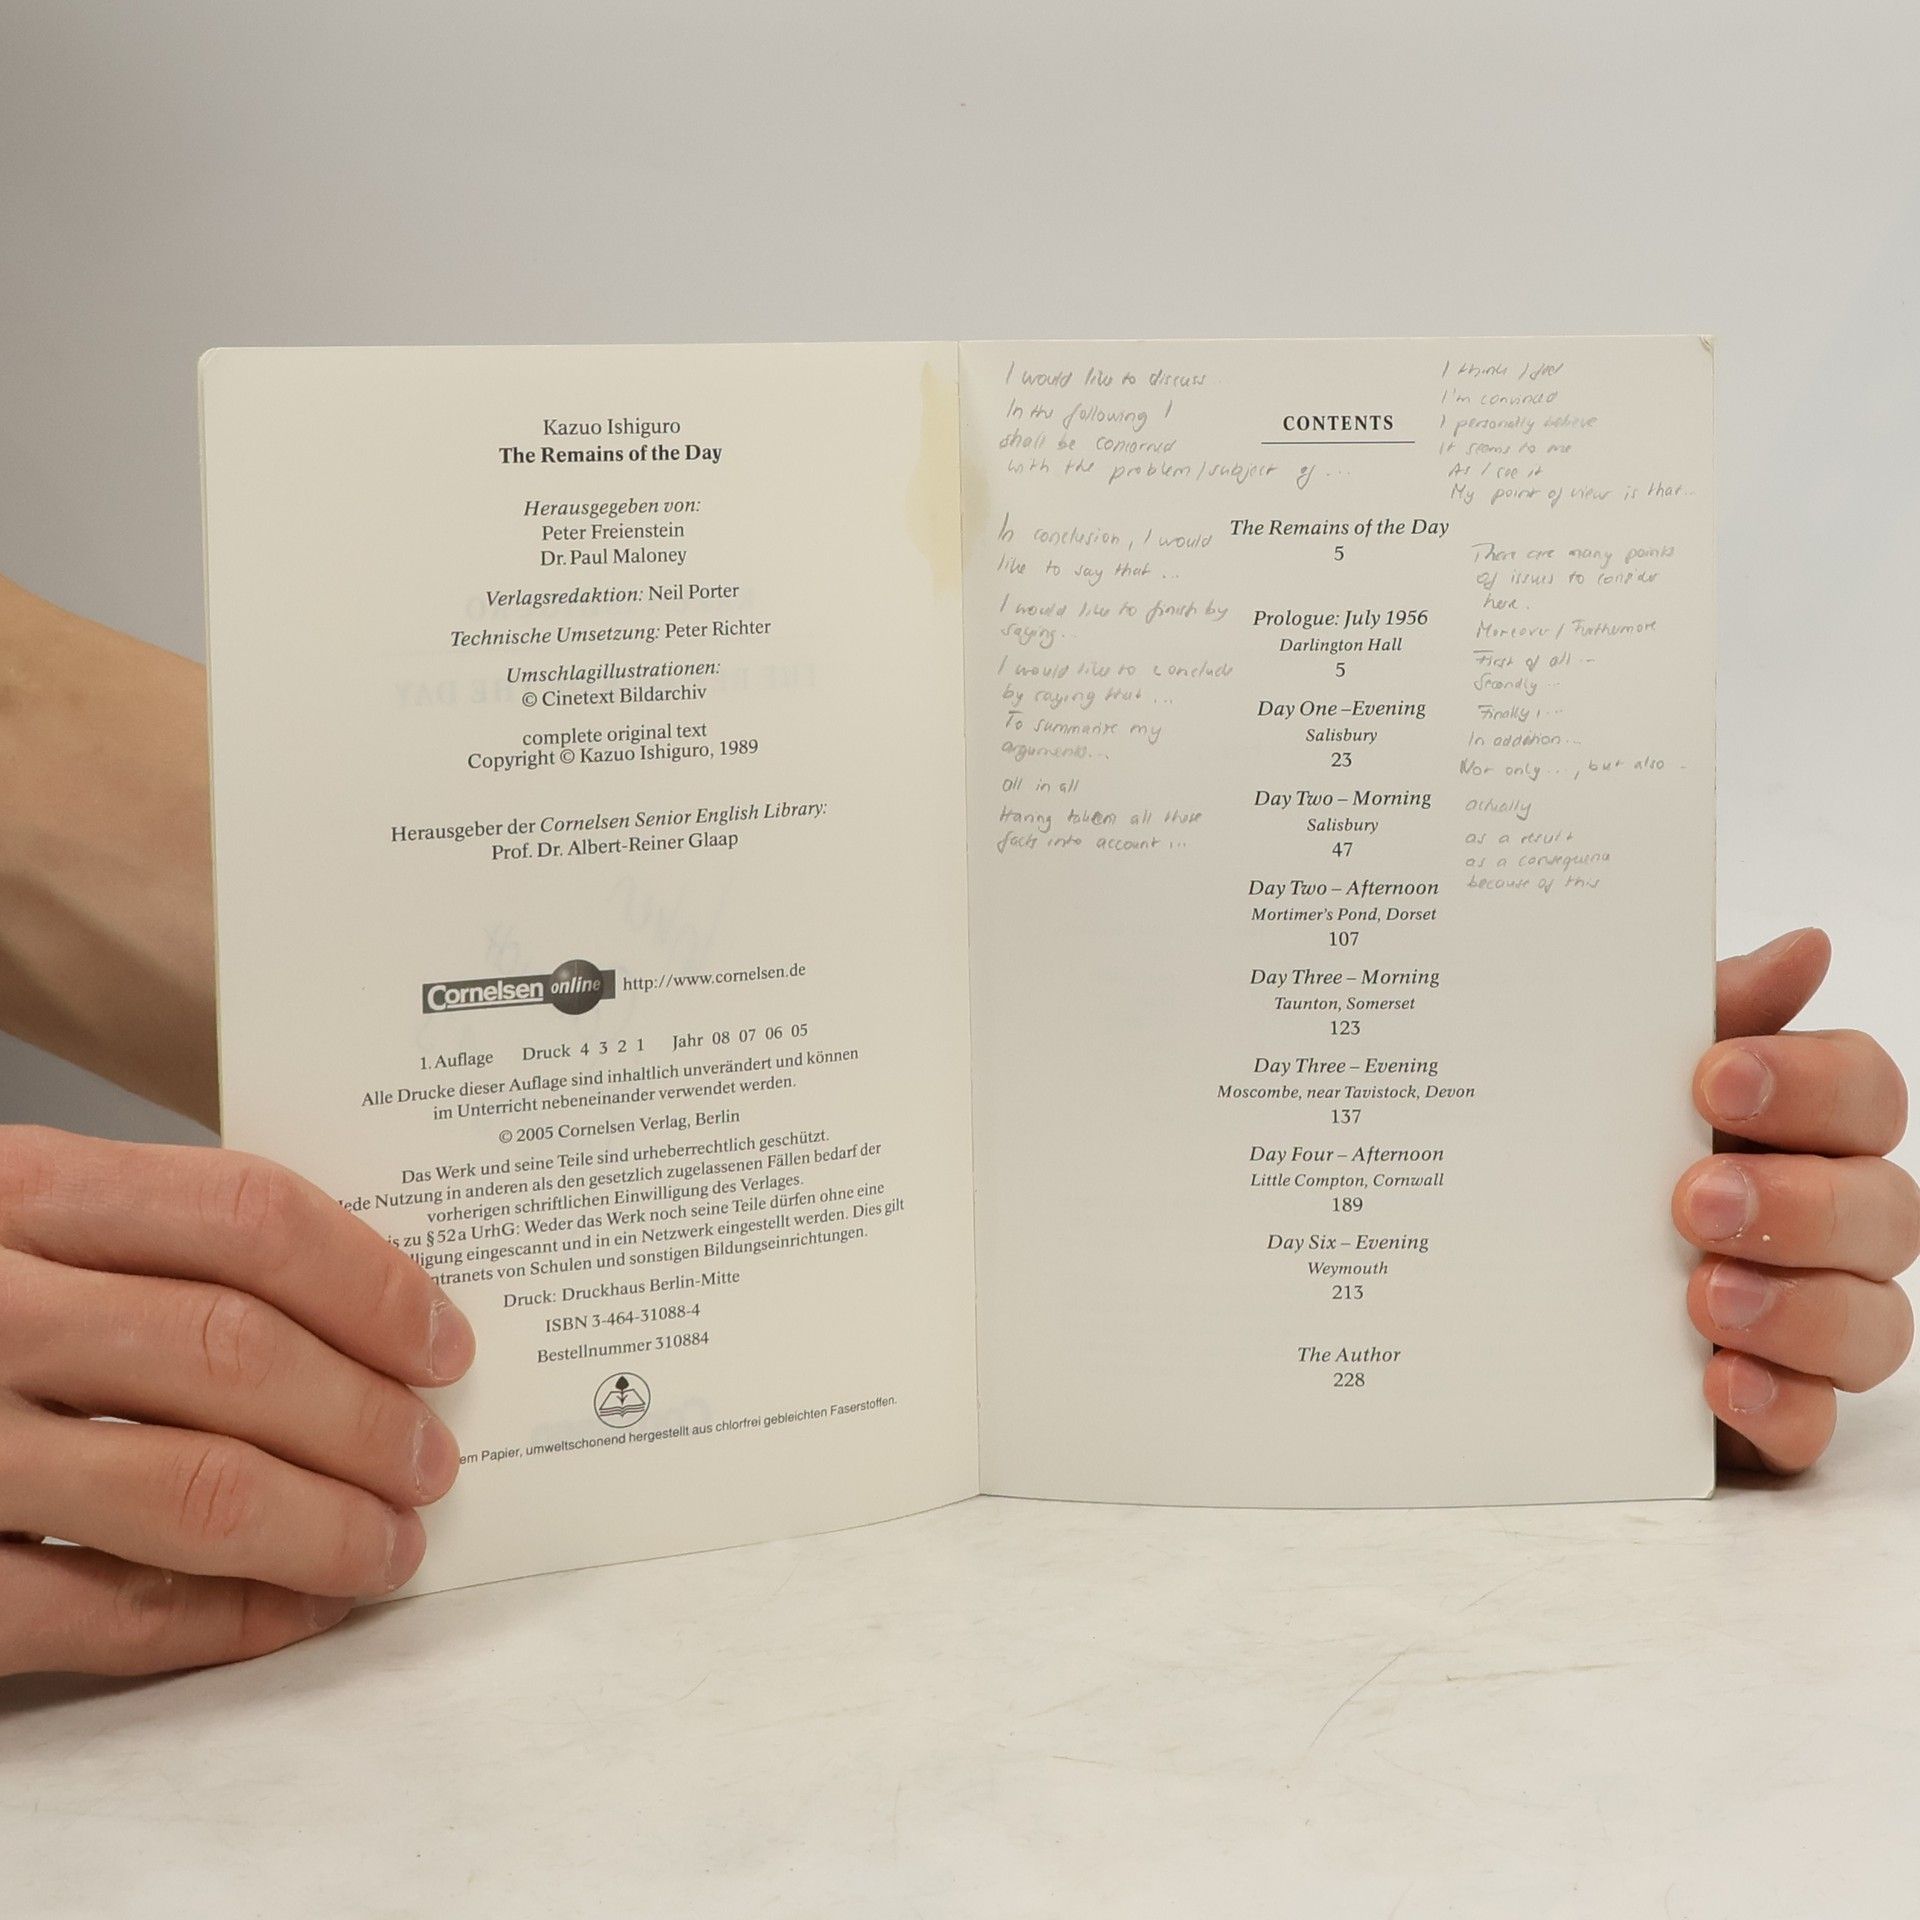 Kazuo Ishiguro
The Remains of the Day
Herausgegeben von:
Peter Freienstein
Dr. Paul Maloney
Verlagsredaktion: Neil Porter
Technische Umsetzung: Peter Richter
Umschlagillustrationen:
© Cinetext Bildarchiv
complete original text
Copyright © Kazuo Ishiguro, 1989
Herausgeber der Cornelsen Senior English Library:
Prof. Dr. Albert-Reiner Glaap
Cornelsen online http://www.cornelsen.de
1. Auflage Druck 4 3 2 1 Jahr 08 07 06 05
Alle Drucke dieser Auflage sind inhaltlich unverändert und können
im Unterricht nebeneinander verwendet werden.
© 2005 Cornelsen Verlag, Berlin
Das Werk und seine Teile sind urheberrechtlich geschützt.
Jede Nutzung in anderen als den gesetzlich zugelassenen Fällen bedarf der
vorherigen schriftlichen Einwilligung des Verlages.
zu § 52 a UrhG: Weder das Werk noch seine Teile dürfen ohne eine
eingescannt und in ein Netzwerk eingestellt werden. Dies gilt
von Schulen und sonstigen Bildungseinrichtungen.
Druck: Druckhaus Berlin-Mitte
ISBN 3-464-31088-4
Bestellnummer 310884
Papier, umweltschonend hergestellt aus chlorfrei gebleichten Faserstoffen.
I would like to discuss...
In the following I
shall be concerned
with the problem / subject of ...
In conclusion, I would
like to say that ...
I would like to finish by
saying...
I would like to conclude
by saying that ...
To summarize my
arguments...
all in all
Having taken all these
facts into account ...
CONTENTS
The Remains of the Day
5
Prologue: July 1956
Darlington Hall
5
Day One –Evening
Salisbury
23
Day Two – Morning
Salisbury
47
Day Two – Afternoon
Mortimer's Pond, Dorset
107
Day Three – Morning
Taunton, Somerset
123
Day Three – Evening
Moscombe, near Tavistock, Devon
137
Day Four – Afternoon
Little Compton, Cornwall
189
Day Six – Evening
Weymouth
213
The Author
228
I think / feel
I'm convinced
I personally believe
It seems to me
As I see it
My point of view is that...
There are many points
of issues to consider
here.
Moreover / Furthermore
First of all ...
Secondly ...
Finally, ...
In addition...
Not only ..., but also ..
actually
as a result
as a consequence
because of this